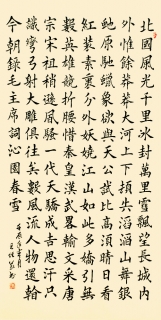 北國風光千里冰封萬里雪飄望長城内
外惟餘莽莽大河上下頓失滔滔山舞銀
蛇原馳蠟象欲與天公試比高須晴日看
紅裝素裹分外妖嬈江山如此多嬌引無
數英雄競折腰惜秦皇漢武略輸文采唐
宗宋祖稍遜風騷一代天驕成吉思汗只
識彎弓射大雕俱往矣數風流人物還看
今朝錄毛主席詞沁園春雪